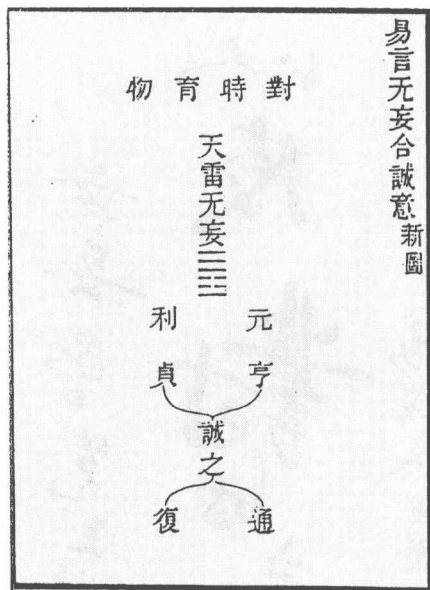 易言无妄合誠意新圖
對時育物
天雷无妄䷘
元亨
利貞
誠之
通
復